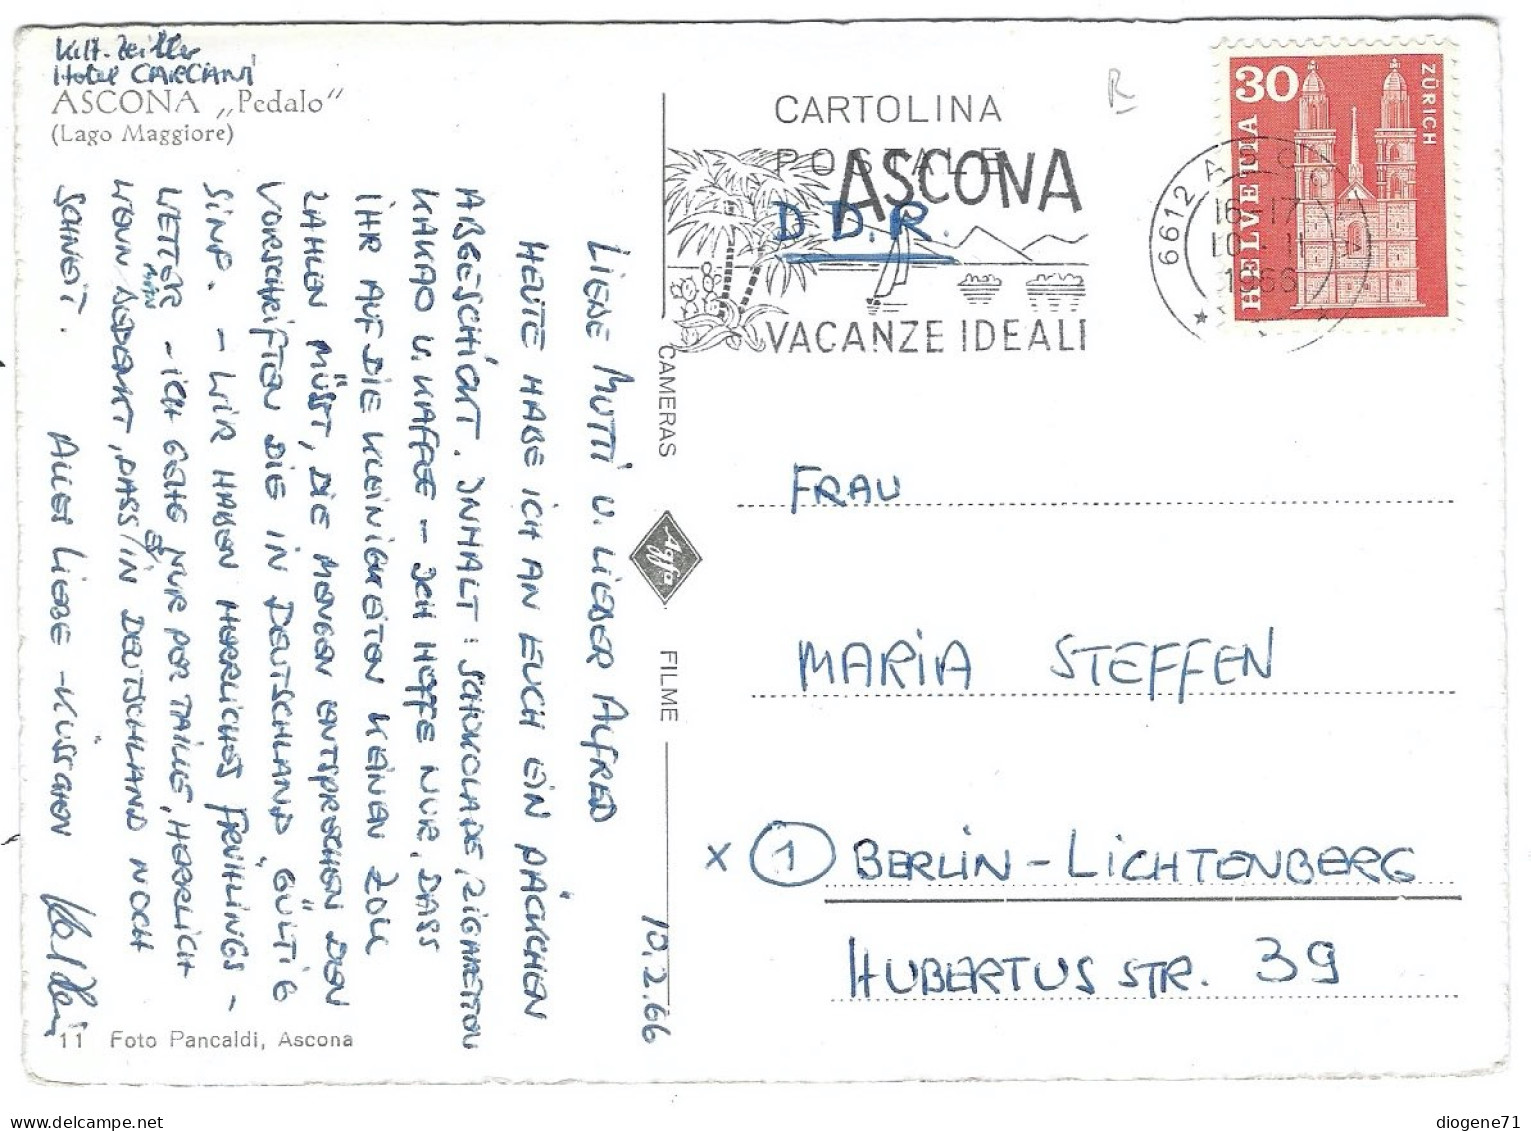 Hotel CARCIANI
ASCONA „Pedalo“
(Lago Maggiore)
CARTOLINA
POSTALE
ASCONA
D D.R.
VACANZE IDEALI
R
30
HELVETIA
ZÜRICH
6612 ASCONA
16-17
10. II
1966
10.2.66
LIEBE MUTTI U. LIEBER ALFRED
HEUTE HABE ICH AN EUCH EIN PÄCKCHEN
ABGESCHICKT. INHALT: SCHOKOLADE, ZIGARETTEN
KAKAO U. KAFFEE - ICH HOFFE NUR, DASS
IHR AUF DIE KLEINIGKEITEN KEINEN ZOLL
ZAHLEN MÜSST, DIE MENGEN ENTSPRECHEN DEN
VORSCHRIFTEN DIE IN DEUTSCHLAND GÜLTIG
SIND. - WIR HABEN HERRLICHES FRÜHLINGS-
WETTER - ICH GEHE NUR PER TAILLE, HERRLICH
WENN MAN BEDENKT, DASS ES IN DEUTSCHLAND NOCH
SCHNEIT. ALLES LIEBE - KÜSSCHEN
CAMERAS
Agfa
FILME
FRAU
MARIA STEFFEN
x 1 BERLIN-LICHTENBERG
HUBERTUS STR. 39
11 Foto Pancaldi, Ascona
diogene71